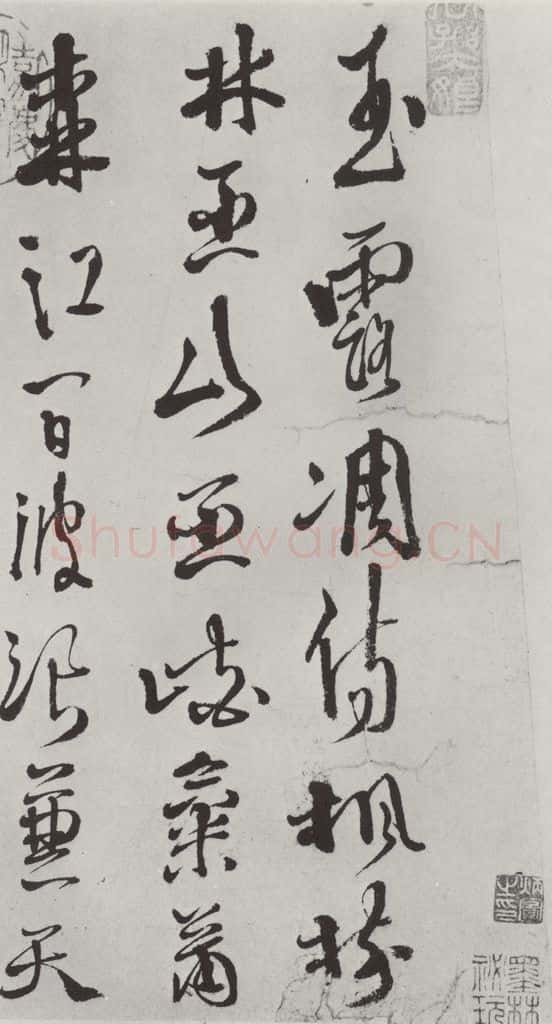 玉露凋傷楓樹
林巫山巫峽氣蕭
森江間波浪兼天
墨林祕玩
Shufawang.CN